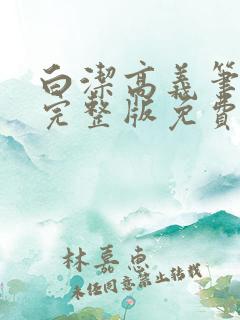 白潔高義筆
完整版免費
林嘉惠
未經同意禁止轉載